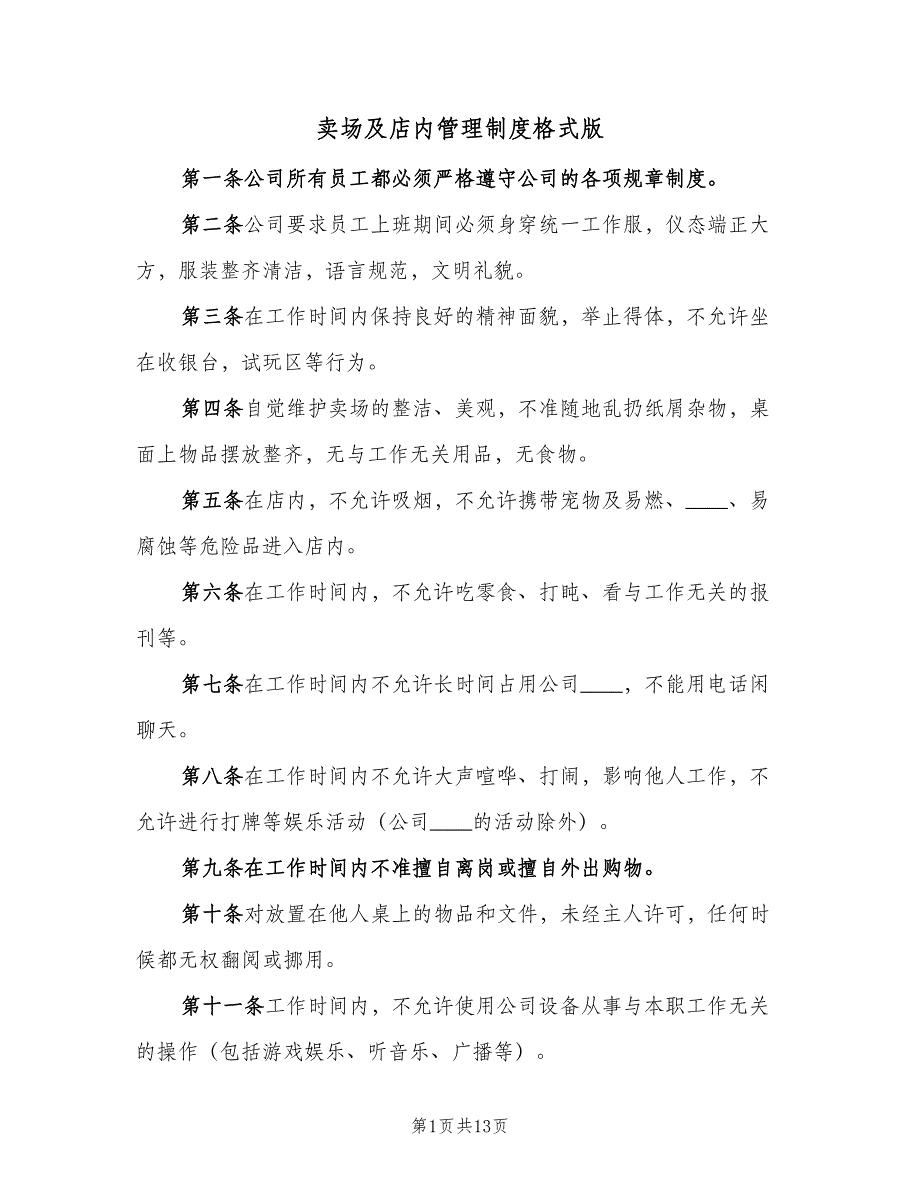 卖场及店内管理制度格式版
第一条公司所有员工都必须严格遵守公司的各项规章制度。
第二条公司要求员工上班期间必须身穿统一工作服，仪态端正大
方，服装整齐清洁，语言规范，文明礼貌。
第三条在工作时间内保持良好的精神面貌，举止得体，不允许坐
在收银台，试玩区等行为。
第四条自觉维护卖场的整洁、美观，不准随地乱扔纸屑杂物，桌
面上物品摆放整齐，无与工作无关用品，无食物。
第五条在店内，不允许吸烟，不允许携带宠物及易燃、____、易
腐蚀等危险品进入店内。
第六条在工作时间内，不允许吃零食、打盹、看与工作无关的报
刊等。
第七条在工作时间内不允许长时间占用公司____，不能用电话闲
聊天。
第八条在工作时间内不允许大声喧哗、打闹，影响他人工作，不
允许进行打牌等娱乐活动（公司____的活动除外）。
第九条在工作时间内不准擅自离岗或擅自外出购物。
第十条对放置在他人桌上的物品和文件，未经主人许可，任何时
候都无权翻阅或挪用。
第十一条工作时间内，不允许使用公司设备从事与本职工作无关
的操作（包括游戏娱乐、听音乐、广播等）。
第1页共13页